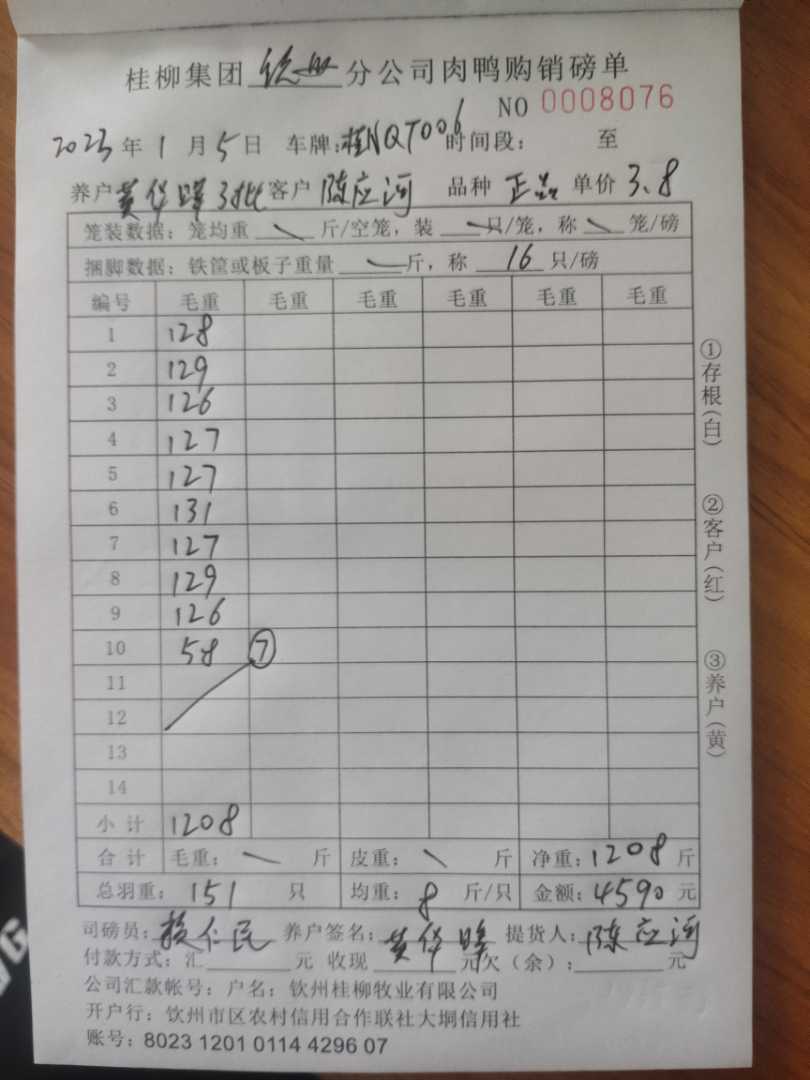 桂柳集团 钦州 分公司肉鸭购销磅单
NO 0008076
2023年1月5日 车牌:桂NQT006 时间段: 至
养户 黄华 3批 客户 陈应 品种 正品 单价 3.8
笼装数据:笼均重 斤/空笼,装 只/笼,称 笼/磅
捆脚数据:铁筐或板子重量 斤,称 16 只/磅
编号 毛重 毛重 毛重 毛重 毛重 毛重
1 128
2 129
3 126
4 127
5 127
6 131
7 127
8 129
9 126
10 58 ⑦
11
12
13
14
小计 1208
合计 毛重: 斤 皮重: 斤 净重:1208斤
总羽重:151只 均重:8斤/只 金额:4590元
①存根(白)
②客户(红)
③养户(黄)
司磅员:赖仁民 养户签名:黄华 提货人:陈应
付款方式:汇 元 收现 元欠(余): 元
公司汇款帐号:户名:钦州桂柳牧业有限公司
开户行:钦州市区农村信用合作联社大垌信用社
账号:8023 1201 0114 4296 07